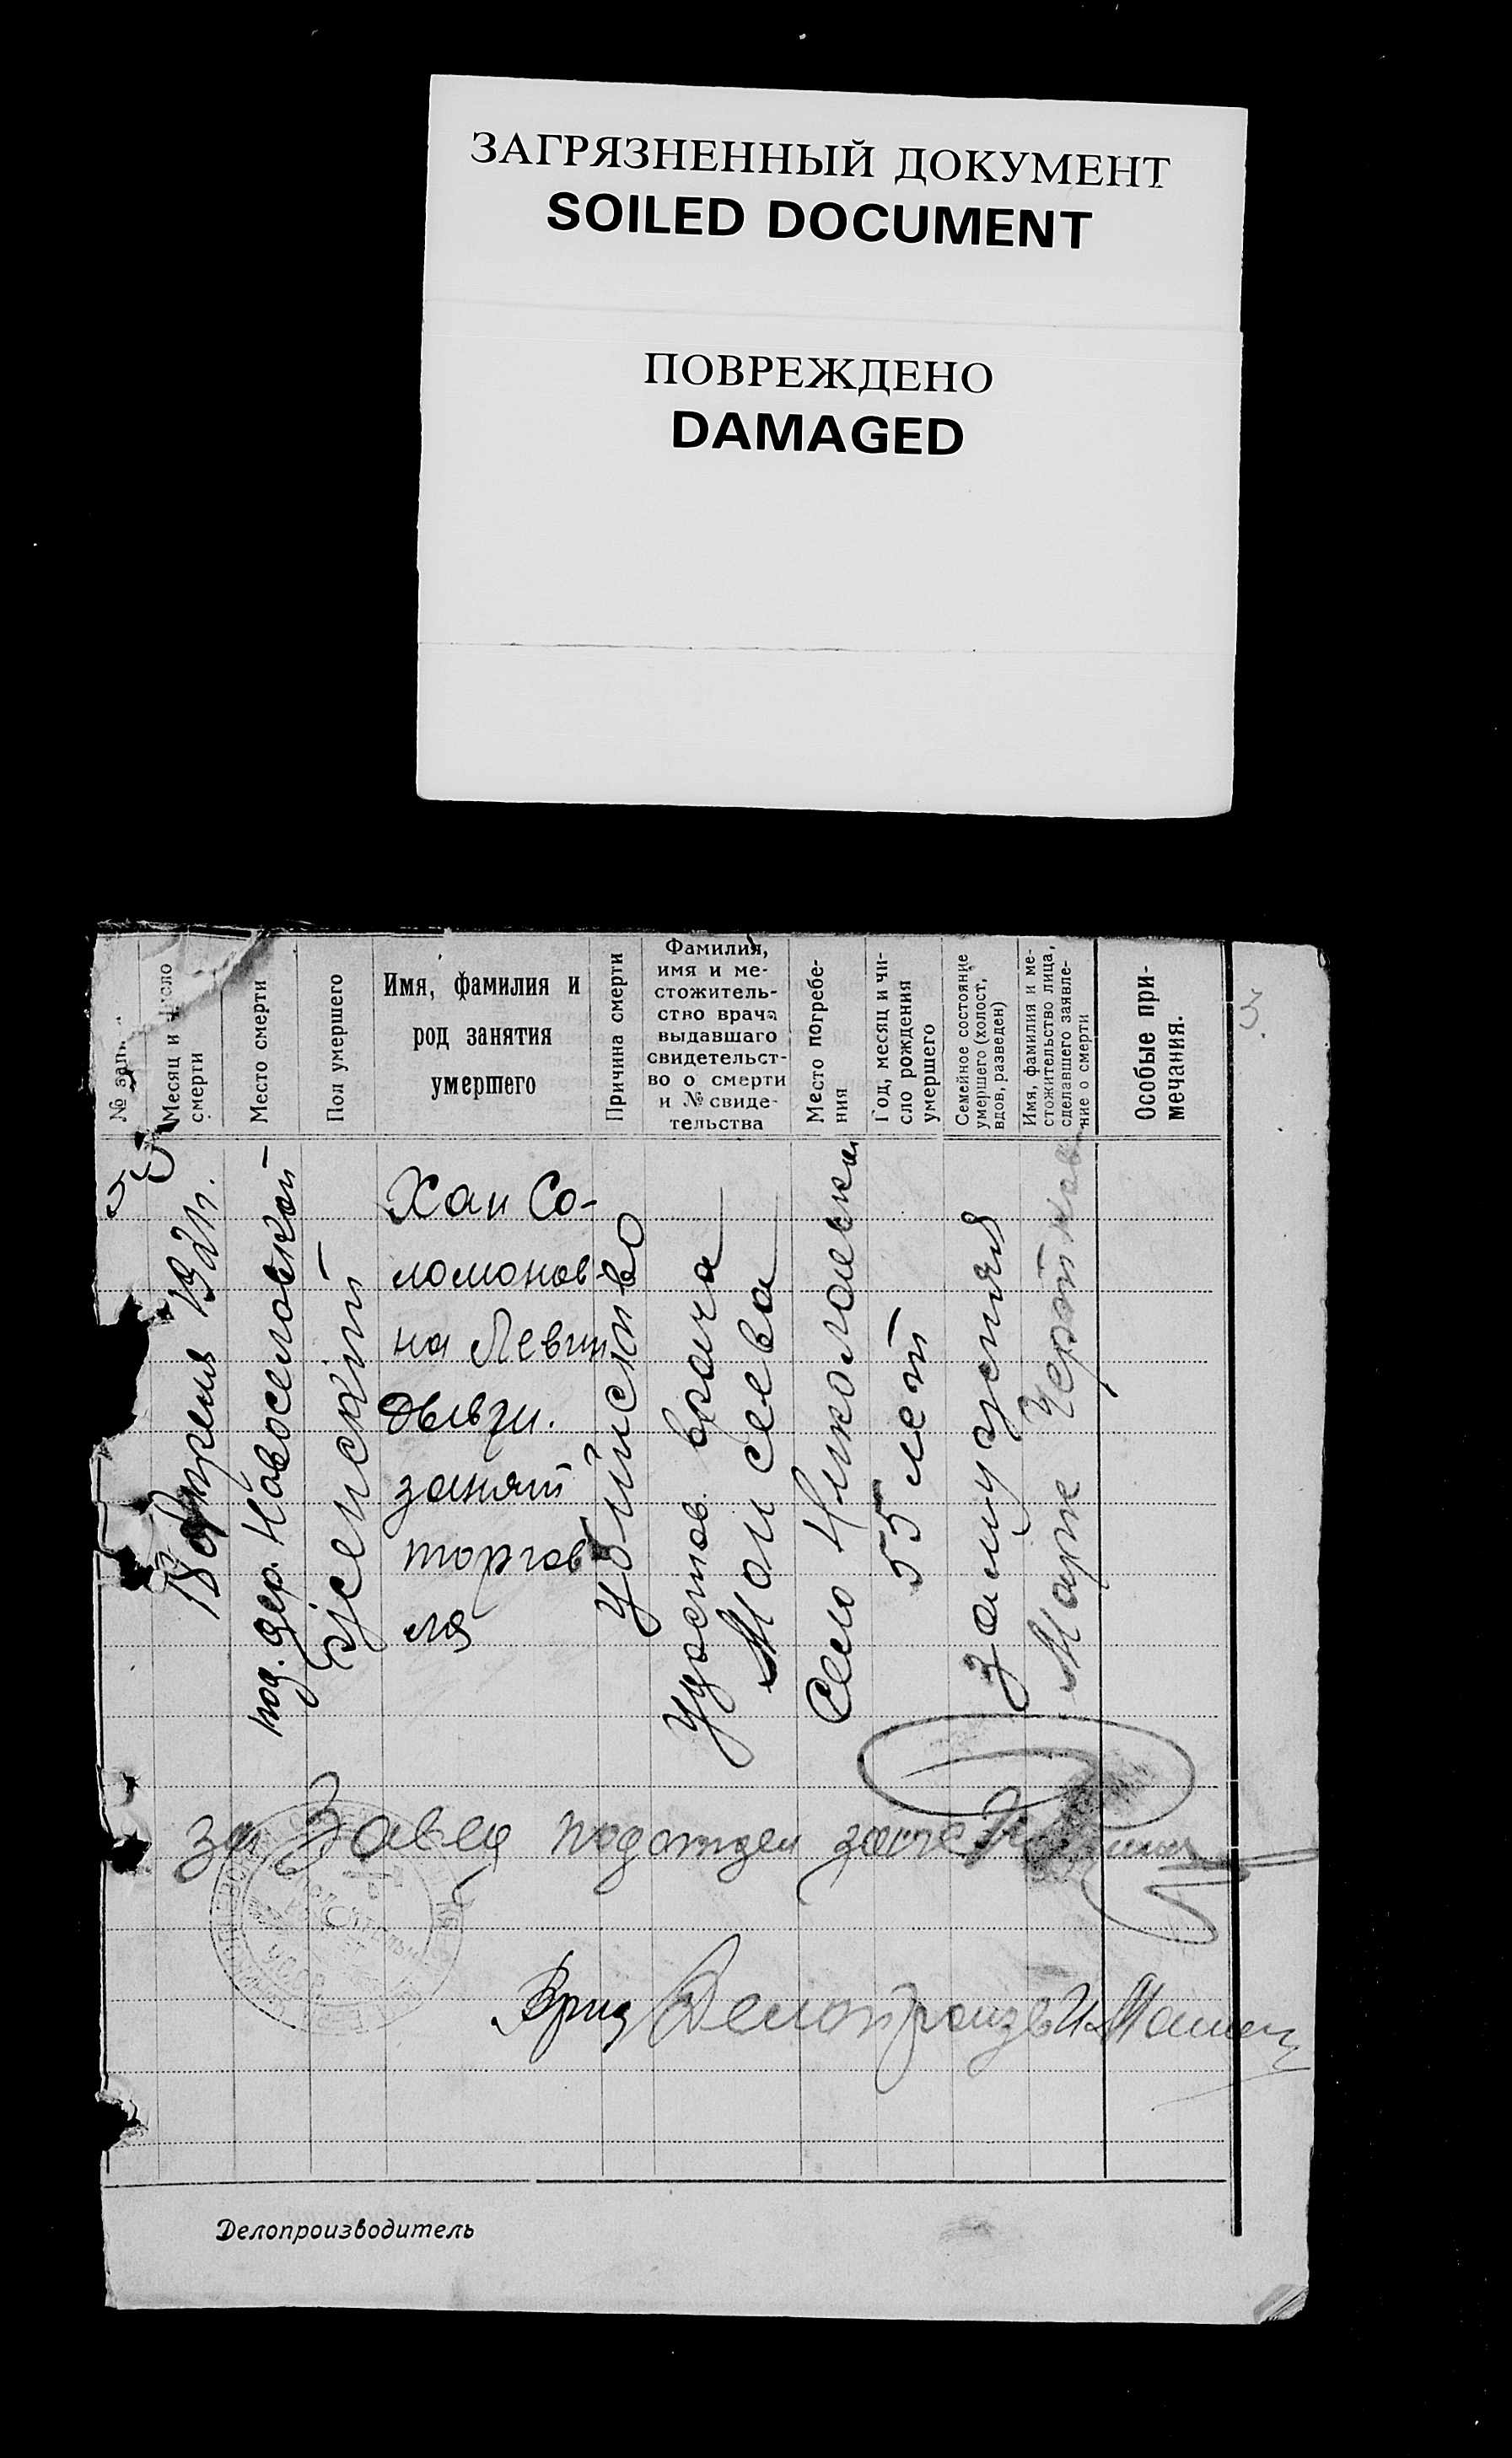 ЗАГРЯЗНЕННЫЙ ДОКУМЕНТ
SOILED DOCUMENT
ПОВРЕЖДЕНО
DAMAGED
3.
№
Месяц и число
смерти
Место смерти
Пол умершего
Имя, фамилия и
род занятия
умершего
Причина смерти
Фамилия,
имя и ме-
стожитель-
ство врача
выдавшаго
свидетельст-
во о смерти
и № свиде-
тельства
Место погребе-
ния
Год, месяц и чи-
сло рождения
умершего
Семейное состояние
умершего (холост,
вдов, разведен)
Имя, фамилия и ме-
стожительство лица,
сделавшего заявле-
ние о смерти
Особые при-
мечания.
18 Апреля
под. дер. Новоселовкой
женский
Хаи Со-
ломонов-
на Левин
занят
торгов
ля
убийство
Удостов. врача
Моисеева
Село Николаевка
55 лет
замужняя
Марк
за Завед подотдел
Врид Делопроизв
УССР
Делопроизводитель